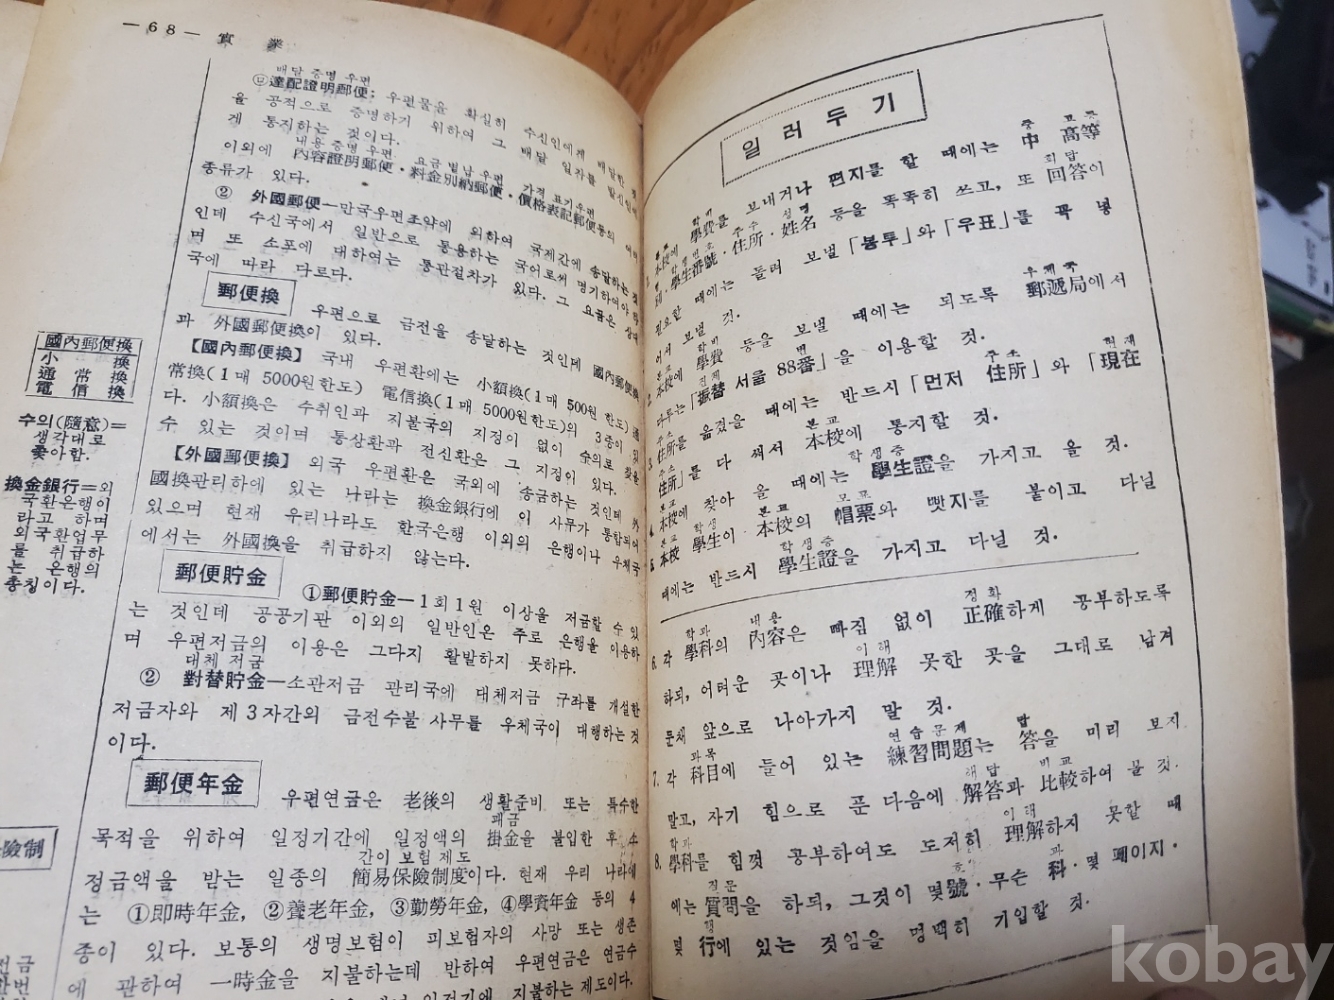 —68— 實 業
배달 증명 우편
㉤達配證明郵便: 우편물을 확실히 수신인에게 배달한 것
을 공적으로 증명하기 위하여 그 배달 일자를 발신인에
게 통지하는 것이다.
내용 증명 우편 요금 별납 우편 가격 표기우편
이외에 內容證明郵便·料金別納郵便·價格表記郵便等의
종류가 있다.
② 外國郵便—만국우편조약에 의하여 국제간에 송달하는 것
인데 수신국에서 일반으로 통용하는 국어로써 명기하여야 하
며 또 소포에 대하여는 통관절차가 있다. 그 요금은 상대
국에 따라 다르다.
郵便換
우편으로 금전을 송달하는 것인데 國內郵便換
과 外國郵便換이 있다.
【國內郵便換】 국내 우편환에는 小額換(1매 500원 한도) 通
常換(1매 5000원한도) 電信換(1매 5000원한도)의 3종이 있
다. 小額換은 수취인과 지불국의 지정이 없이 수의로 찾을
수 있는 것이며 통상환과 전신환은 그 지정이 있다.
【外國郵便換】 외국 우편환은 국외에 송금하는 것인데 外
國換관리하에 있는 나라는 換金銀行에 이 사무가 통합되어
있으며 현재 우리나라도 한국은행 이외의 은행이나 우체국
에서는 外國換을 취급하지 않는다.
郵便貯金
①郵便貯金—1회1원 이상을 저금할 수 있
는 것인데 공공기관 이외의 일반인은 주로 은행을 이용하
며 우편저금의 이용은 그다지 활발하지 못하다.
대체 저금
② 對替貯金—소관저금 관리국에 대체저금 구좌를 개설한
저금자와 제3자간의 금전수불 사무를 우체국이 대행하는 것
이다.
郵便年金
우편연금은 老後의 생활준비 또는 특수한
패금
목적을 위하여 일정기간에 일정액의 掛金을 불입한 후 수
간이 보험 제도
정금액을 받는 일종의 簡易保險制度이다. 현재 우리 나라에
는 ①即時年金, ②養老年金, ③勤勞年金, ④學資年金 등의 4
종이 있다. 보통의 생명보험이 피보험자의 사망 또는 생존
에 관하여 一時金을 지불하는데 반하여 우편연금은 연금수
일정기에 지불하는 제도이다.
國內郵便換
小 換
通常換
電信換
수의(隨意)=
생각대로
좋아함.
換金銀行=외
국환은행이
라고 하며
외국환업무
를 취급하
는 은행의
총칭이다.
險制
전금
한번
일러두기
학비 중 고등
1. 本校에 學費를 보내거나 편지를 할 때에는 中 高等
학생번호 주소 성명 회답
別·學生番號·住所·姓名 등을 똑똑히 쓰고, 또 回答이
필요한 때에는 돌려 보낼 「봉투」와 「우표」를 꼭 넣
어서 보낼 것.
본교 학비 우체국
2. 本校에 學費 등을 보낼 때에는 되도록 郵遞局에서
진체 번
다루는 「振替 서울 88番」을 이용할 것.
주소 주소 현재
3. 住所를 옮겼을 때에는 반드시 「먼저 住所」와 「現在
주소 본교
住所」를 다 써서 本校에 통지할 것.
본교 학생증
4. 本校에 찾아 올 때에는 學生證을 가지고 올 것.
본교 학생 본교 모표
5. 本校 學生이 本校의 帽票와 뺏지를 붙이고 다닐
학생증
때에는 반드시 學生證을 가지고 다닐 것.
학과 내용 정확
6. 각 學科의 內容은 빠짐 없이 正確하게 공부하도록
이해
하되, 어려운 곳이나 理解 못한 곳을 그대로 남겨
둔채 앞으로 나아가지 말 것.
과목 연습문제 답
7. 각 科目에 들어 있는 練習問題는 答을 미리 보지
해답 비교
말고, 자기 힘으로 푼 다음에 解答과 比較하여 볼 것.
학과 이해
8. 學科를 힘껏 공부하여도 도저히 理解하지 못할 때
질문 호 과
에는 質問을 하되, 그것이 몇號·무슨 科·몇 페이지·
행
몇 行에 있는 것임을 명백히 기입할 것.
kobay